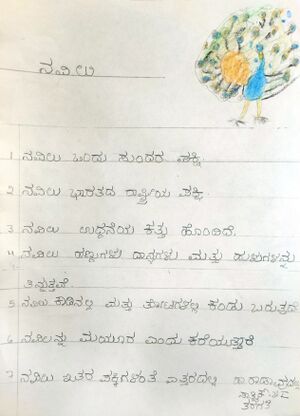 ನವಿಲು
1 ನವಿಲು ಒಂದು ಸುಂದರ ಪಕ್ಷಿ
2 ನವಿಲು ಭಾರತದ ರಾಷ್ಟ್ರೀಯ ಪಕ್ಷಿ
3 ನವಿಲು ಉದ್ದನೆಯ ಕತ್ತು ಹೊಂದಿದೆ.
4 ನವಿಲು ಹಣ್ಣುಗಳು ಧಾನ್ಯಗಳು ಮತ್ತು ಹುಳುಗಳನ್ನು
ತಿನ್ನುತ್ತವೆ
5 ನವಿಲು ಕಾಡಿನಲ್ಲಿ ಮತ್ತು ತೋಟಗಳಲ್ಲಿ ಕಂಡು ಬರುತ್ತದೆ
6 ನವಿಲನ್ನು ಮಯೂರ ಎಂದು ಕರೆಯುತ್ತಾರೆ
7 ನವಿಲು ಇತರ ಪಕ್ಷಿಗಳಂತೆ ಎತ್ತರದಲ್ಲಿ
ತರಗತಿ